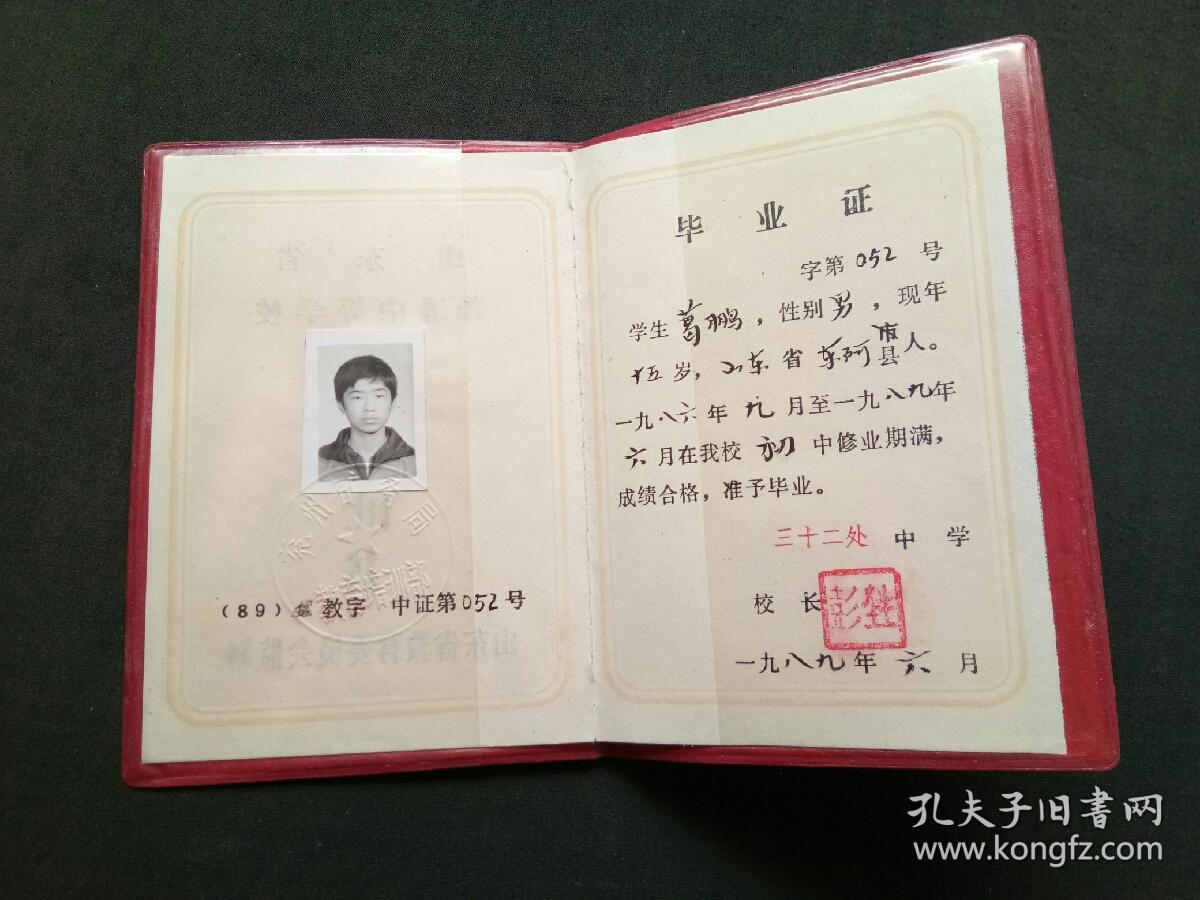 山东省
普通中等学校
山东省教育委员会监制
(89) 教字 中证第052号
毕业证
字第052号
学生葛鹏，性别男，现年
十五岁，山东省东阿市县人。
一九八六年九月至一九八九年
六月在我校初中修业期满，
成绩合格，准予毕业。
三十二处中学
校长
一九八九年六月
孔夫子旧书网
www.kongfz.com